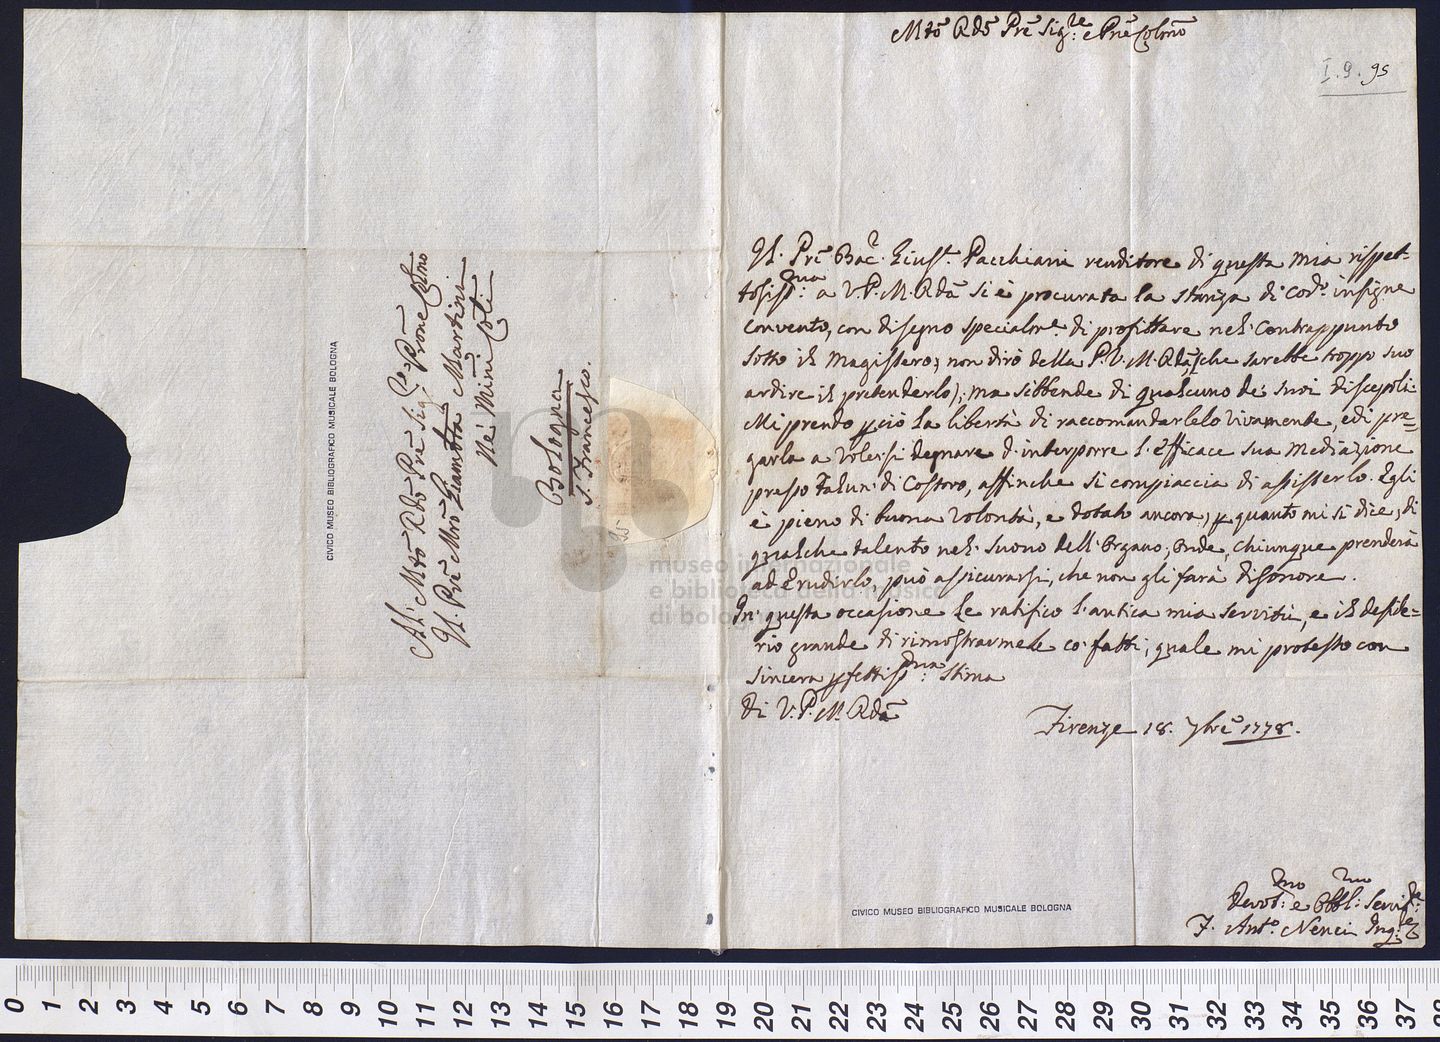 Mto Rdo Pre Sig:re e Pne Colmo
I. 9. 95
Il Pre Bac. Giust. Pacchiani renditore di questa mia rispet-
tosiss:ma a V. P. M. Rda si è procurata la stanza di cod.o insigne
convento, con disegno specialm.e di profittare nel Contrappunto
sotto il Magistero; non dirò della P. V. M. Rda (che sarebbe troppo suo
ardire il pretenderlo); ma sibbene di qualcuno de' suoi discepoli.
Mi prendo p ciò la libertà di raccomandarlelo vivamente, e di pre=
garla a volersi degnare d'interporre l'efficace sua Mediazione
presso talun di Costoro, affinche si compiaccia di assisterlo. Egli
è pieno di buona volontà, e dotato ancora, p quanto mi si dice, di
qualche talento nel suono dell'Organo; onde, chiunque prenderà
ad erudirlo, può assicurarsi, che non gli farà disonore.
In questa occasione Le ratifico l'antica mia servitù, e il deside=
rio grande di rimostrarmele co' fatti; quale mi protesto con
sincera pfettiss:ma stima
Di V. P. M. Rda
Firenze 18. 7bre 1778.
Devot:mo e Obbl:mo Servi:re
F. Ant.o Nenci Inq:re
CIVICO MUSEO BIBLIOGRAFICO MUSICALE BOLOGNA
Al Mto Rdo Pre Sig:re Prone Colmo
Il Pre Mro Giambta Martini
Ne' Min Coti
Bologna
S. Francesco.
95
CIVICO MUSEO BIBLIOGRAFICO MUSICALE BOLOGNA
museo internazionale
e biblioteca della musica
di bologna
0 1 2 3 4 5 6 7 8 9 10 11 12 13 14 15 16 17 18 19 20 21 22 23 24 25 26 27 28 29 30 31 32 33 34 35 36 37 38